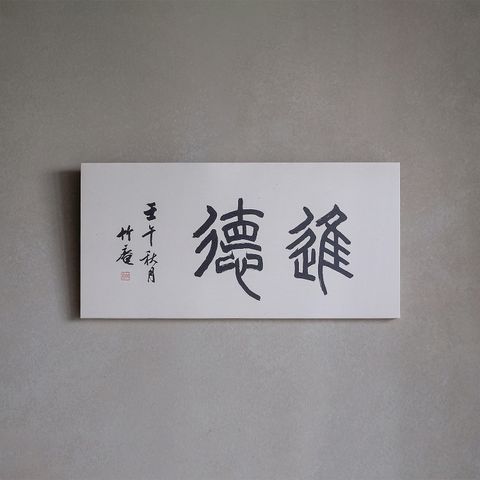 進德
壬午秋月
竹庵